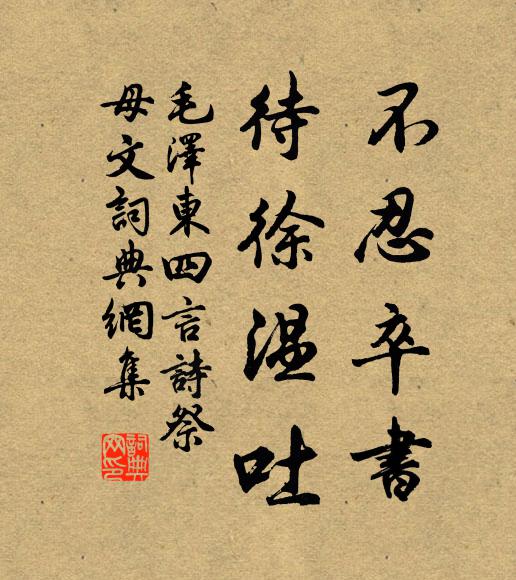 不忍卒書
待徐温吐
毛澤東四言詩祭
母文詞典網集
詞典网印